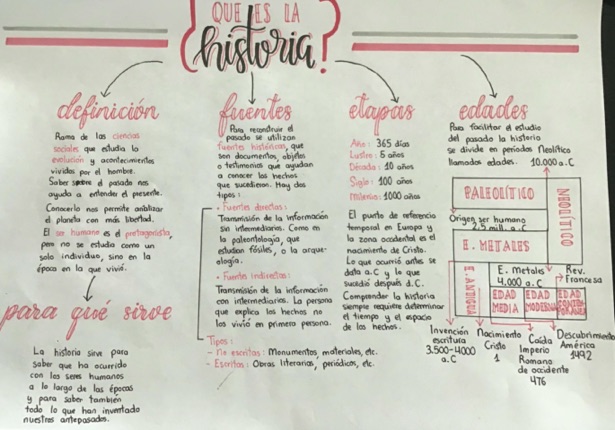 QUE ES LA
historia?
definición
Rama de las ciencias
sociales que estudia la
evolución y acontecimientos
vividos por el hombre.
Saber sobre el pasado nos
ayuda a entender el presente.
Conocerlo nos permite analizar
el planeta con más libertad.
El ser humano es el protagonista,
pero no se estudia como un
solo individuo, sino en la
época en la que vivió.
para qué sirve
La historia sirve para
saber que ha ocurrido
con los seres humanos
a lo largo de las épocas
y para saber también
todo lo que han inventado
nuestros antepasados.
fuentes
Para reconstruir el
pasado se utilizan
fuentes históricas, que
son documentos, objetos
o testimonios que ayudan
a conocer los hechos
que sucedieron. Hay dos
tipos:
• Fuentes directas:
Transmisión de la información
sin intermediarios. Como en
la paleontología, que
estudian fósiles, o la arque-
ología.
• Fuentes indirectas:
Transmisión de la información
con intermediarios. La persona
que explica los hechos no
los vivió en primera persona.
Tipos:
- No escritas: Monumentos, materiales, etc.
- Escritas: Obras literarias, periódicos, etc.
etapas
Año: 365 días
Lustro: 5 años
Década: 10 años
Siglo: 100 años
Milenio: 1000 años
El punto de referencia
temporal en Europa y
la zona occidental es el
nacimiento de Cristo.
Lo que ocurrió antes se
data a.C y lo que
sucedió después d.C.
Comprender la historia
siempre requiere determinar
el tiempo y el espacio
de los hechos.
edades
Para facilitar el estudio
del pasado la historia
se divide en periodos Neolítico
llamados edades. 10.000 a.C
PALEOLÍTICO
NEOLÍTICO
Origen ser humano
2,5 mill. a.C
E. METALES
E. ANTIGUA
E. Metales
4.000 a.C
Rev.
Francesa
EDAD
MEDIA
EDAD
MODERNA
EDAD
CONTEM-
PORÁNEA
Invención
escritura
3.500-4000
a.C
Nacimiento
Cristo
1
Caída
Imperio
Romano
de occidente
476
Descubrimiento
América
1492